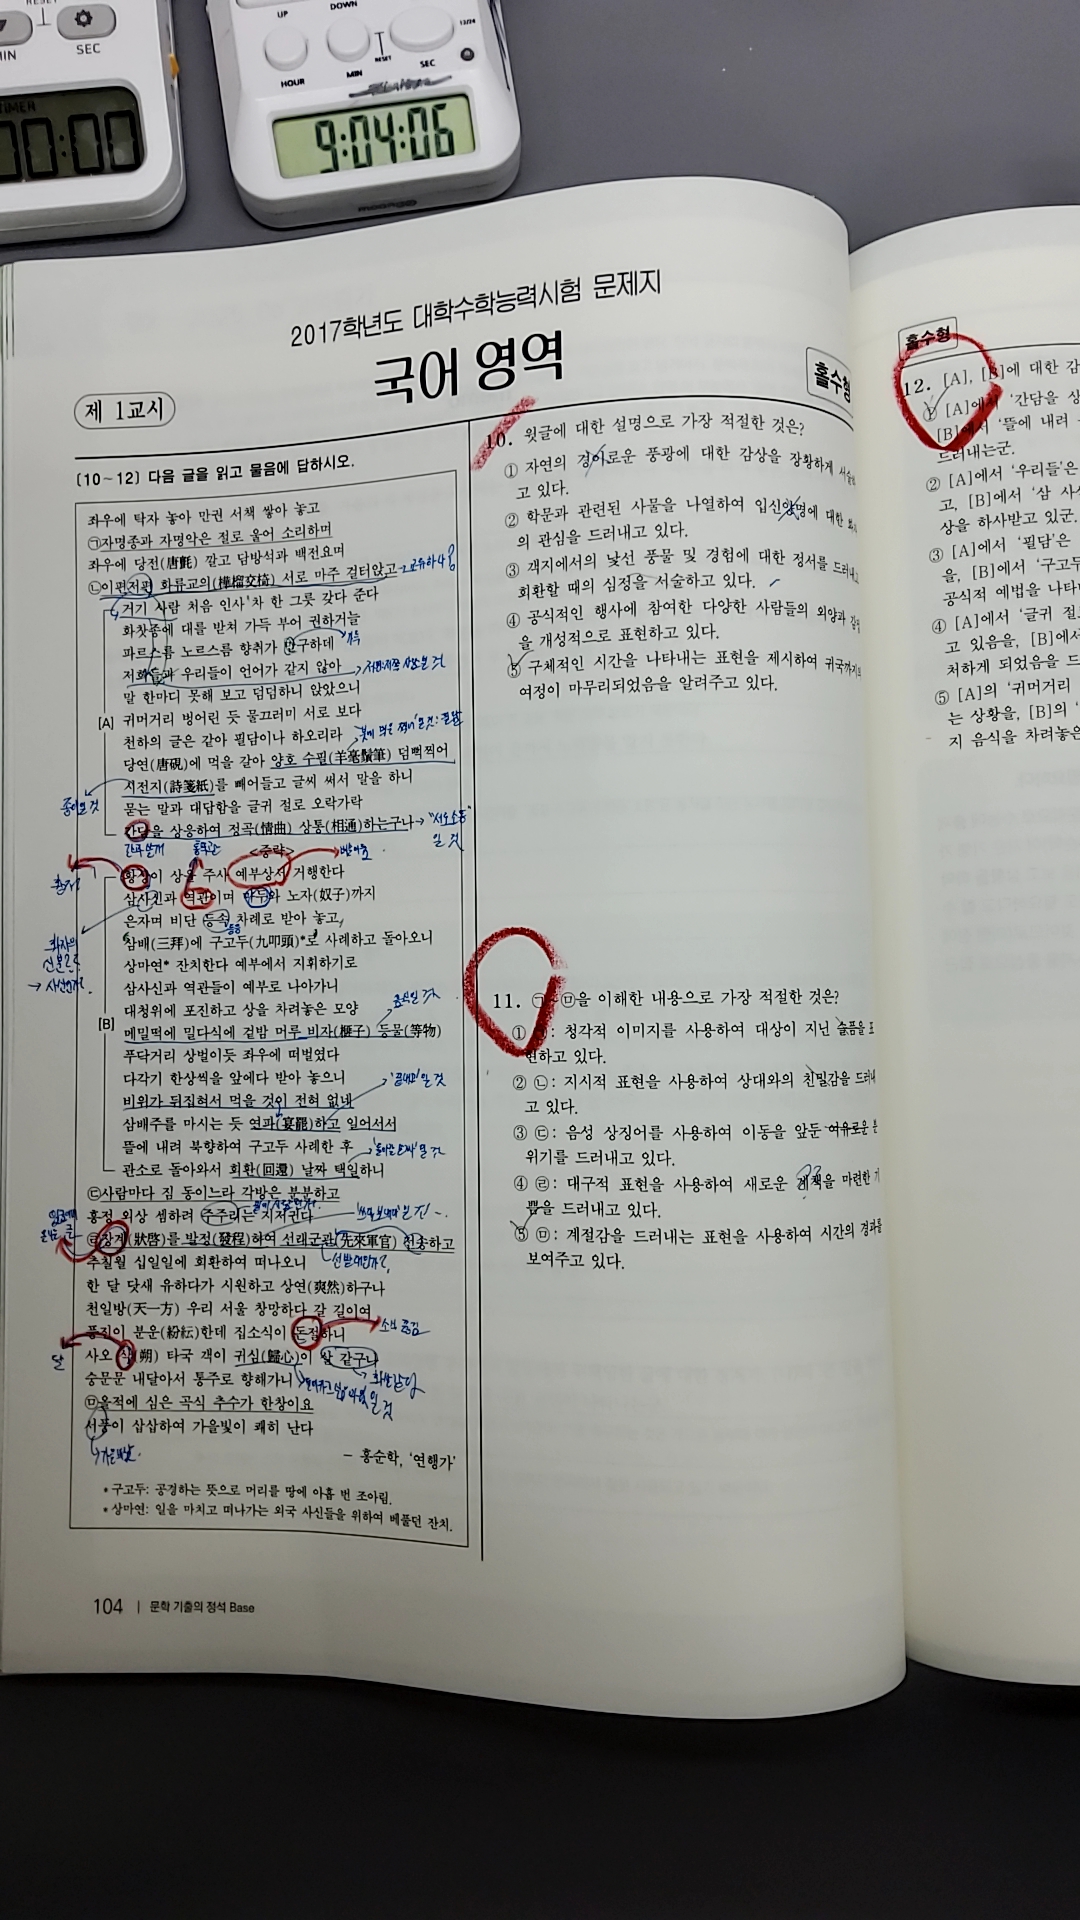 RESET
MIN
SEC
TIMER
00:00
UP
DOWN
12/24
RESET
HOUR
MIN
SEC
9:04:06
2017학년도 대학수학능력시험 문제지
국어 영역
홀수형
제 1교시
[10~12] 다음 글을 읽고 물음에 답하시오.
좌우에 탁자 놓아 만권 서책 쌓아 놓고
㉠자명종과 자명악은 절로 울어 소리하며
좌우에 당전(唐氈) 깔고 담방석과 백전요며
㉡이편저편 화류교의(樺榴交椅) 서로 마주 걸터앉고
거기 사람 처음 인사 차 한 그릇 갖다 준다
화찻종에 대를 받쳐 가득 부어 권하거늘
파르스름 노르스름 향취가 만구하데
저희들과 우리들이 언어가 같지 않아
말 한마디 못해 보고 덤덤하니 앉았으니
[A] 귀머거리 벙어린 듯 물끄러미 서로 보다
천하의 글은 같아 필담이나 하오리라
당연(唐硯)에 먹을 갈아 양호 수필(羊毫鬚筆) 덤뻑찍어
시전지(詩箋紙)를 빼어들고 글씨 써서 말을 하니
종이인 것
묻는 말과 대답함을 글귀 절로 오락가락
간담을 상응하여 정곡(情曲) 상통(相通)하는구나
"서로 소통"
일 것
<중략>
황상이 상을 주사 예부상서 거행한다
삼사신과 역관이며 마두와 노자(奴子)까지
은자며 비단 등속 차례로 받아 놓고
삼배(三拜)에 구고두(九叩頭)*로 사례하고 돌아오니
상마연* 잔치한다 예부에서 지휘하기로
삼사신과 역관들이 예부로 나아가니
대청위에 포진하고 상을 차려놓은 모양
[B] 메밀떡에 밀다식에 겉밤 머루 비자(榧子) 등물(等物)
푸닥거리 상벌이듯 좌우에 떠벌였다
다각기 한상씩을 앞에다 받아 놓으니
비위가 뒤집혀서 먹을 것이 전혀 없네
삼배주를 마시는 듯 연파(宴罷)하고 일어서서
뜰에 내려 북향하여 구고두 사례한 후
관소로 돌아와서 회환(回還) 날짜 택일하니
㉢사람마다 짐 동이느라 각방은 분분하고
흥정 외상 셈하려 주주리는 지저귄다
㉣장계(狀啓)를 발정(發程)하여 선래군관(先來軍官) 전송하고
추칠월 십일일에 회환하여 떠나오니
한 달 닷새 유하다가 시원하고 상연(爽然)하구나
천일방(天一方) 우리 서울 창망하다 갈 길이여
풍진이 분운(紛紜)한데 집소식이 돈절하니
사오 삭(朔) 타국 객이 귀심(歸心)이 살 같구나
달
숭문문 내달아서 통주로 향해가니
㉤올적에 심은 곡식 추수가 한창이요
서풍이 삽삽하여 가을빛이 쾌히 난다
- 홍순학, ‘연행가’
* 구고두: 공경하는 뜻으로 머리를 땅에 아홉 번 조아림.
* 상마연: 일을 마치고 떠나가는 외국 사신들을 위하여 베풀던 잔치.
104 | 문학 기출의 정석 Base
10. 윗글에 대한 설명으로 가장 적절한 것은?
① 자연의 경이로운 풍광에 대한 감상을 장황하게 서술하
고 있다.
② 학문과 관련된 사물을 나열하여 입신양명에 대한
의 관심을 드러내고 있다.
③ 객지에서의 낯선 풍물 및 경험에 대한 정서를 드러내고
회환할 때의 심정을 서술하고 있다.
④ 공식적인 행사에 참여한 다양한 사람들의 외양과
을 개성적으로 표현하고 있다.
⑤ 구체적인 시간을 나타내는 표현을 제시하여 귀국까지의
여정이 마무리되었음을 알려주고 있다.
11. ㉠~㉤을 이해한 내용으로 가장 적절한 것은?
① ㉠: 청각적 이미지를 사용하여 대상이 지닌 슬픔을 표
현하고 있다.
② ㉡: 지시적 표현을 사용하여 상대와의 친밀감을 드러내
고 있다.
③ ㉢: 음성 상징어를 사용하여 이동을 앞둔 여유로운 분
위기를 드러내고 있다.
④ ㉣: 대구적 표현을 사용하여 새로운 계책을 마련한 기
쁨을 드러내고 있다.
⑤ ㉤: 계절감을 드러내는 표현을 사용하여 시간의 경과를
보여주고 있다.
홀수형
12. [A], [B]에 대한 감
① [A]에서 ‘간담을 상
[B]에서 ‘뜰에 내려
드러내는군.
② [A]에서 ‘우리들’은
고, [B]에서 ‘삼 사
상을 하사받고 있군.
③ [A]에서 ‘필담’은
을, [B]에서 ‘구고두
공식적 예법을 나타내
④ [A]에서 ‘글귀 절
고 있음을, [B]에서
처하게 되었음을 드
⑤ [A]의 ‘귀머거리
는 상황을, [B]의 ‘
지 음식을 차려놓은